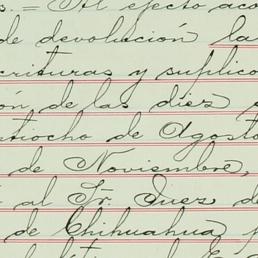 s. = Al efecto aco
de devolución la
crituras y suplico
ón de las diez
ntiocho de Agosto
de Noviembre,
al Sr. Juez de
de Chihuahua